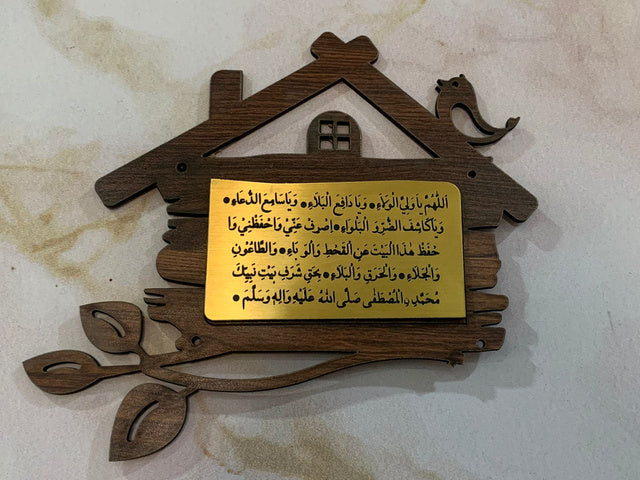 اَللّٰهُمَّ يَا وَلِيَّ الْوَلَاءِ • وَيَا دَافِعَ الْبَلَاءِ • وَيَا سَامِعَ الدُّعَاءِ •
وَيَا كَاشِفَ الضُّرِّ وَ الْبَلْوَاءِ • اِصْرِفْ عَنِّيْ وَاحْفَظْنِيْ وَا
حْفَظْ هٰذَا الْبَيْتَ عَنِ الْقَحْطِ وَالْوَبَاءِ • وَالطَّاعُوْنِ
وَالْجَلَاءِ • وَالْحَرَقِ وَالْبَلَاءِ • بِحَقِّ شَرَفِ بَيْتِ نَبِيِّكَ
مُحَمَّدٍ نِ الْمُصْطَفٰى صَلَّى اللّٰهُ عَلَيْهِ وَاٰلِهٖ وَسَلَّمَ •